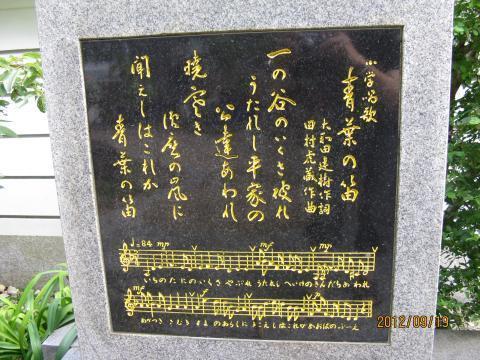 小学唱歌
青葉の笛
大和田建樹作詞
田村虎蔵作曲
一の谷のいくさ破れ
うたれし平家の
公達あわれ
暁寒き
須磨の嵐に
聞えしはこれか
青葉の笛
♩=84 mp mf mp
いちのたにのいくさやぶれ うたれしへいけのきんだちあわれ
mp mf
あかつきさむきすまのあらしに きこえしはこれかあおばのふーえ
2012/09/19